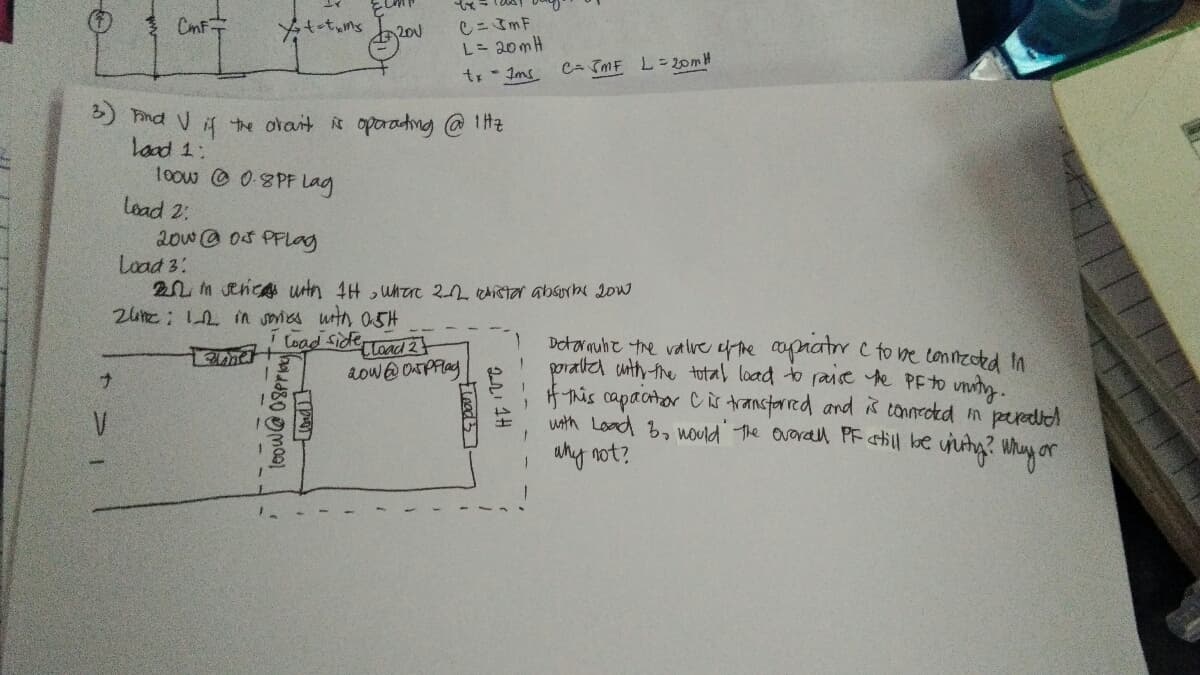 CmF
t=txms
20V
C = 5mF
L = 20mH
tx = 1ms C= 5mF L = 20mH
3) Find V if the circuit is operating @ 1Hz
Load 1:
100W @ 0.8PF Lag
Load 2:
20W @ 0.5 PFLag
Load 3:
2Ω in series with 1H, where 2Ω resistor absorbs 20W
Zline: 1Ω in series with 0.5H
Load side
Zline
Load 2
20W @ 0.5PFlag
+
V
-
Load 1
100W @ 0.8PFlag
Load 3
2Ω, 1H
Determine the value of the capacitor C to be connected in
parallel with the total load to raise the PF to unity.
If this capacitor C is transferred and is connected in parallel
with Load 3, would the overall PF still be unity? Why or
why not?